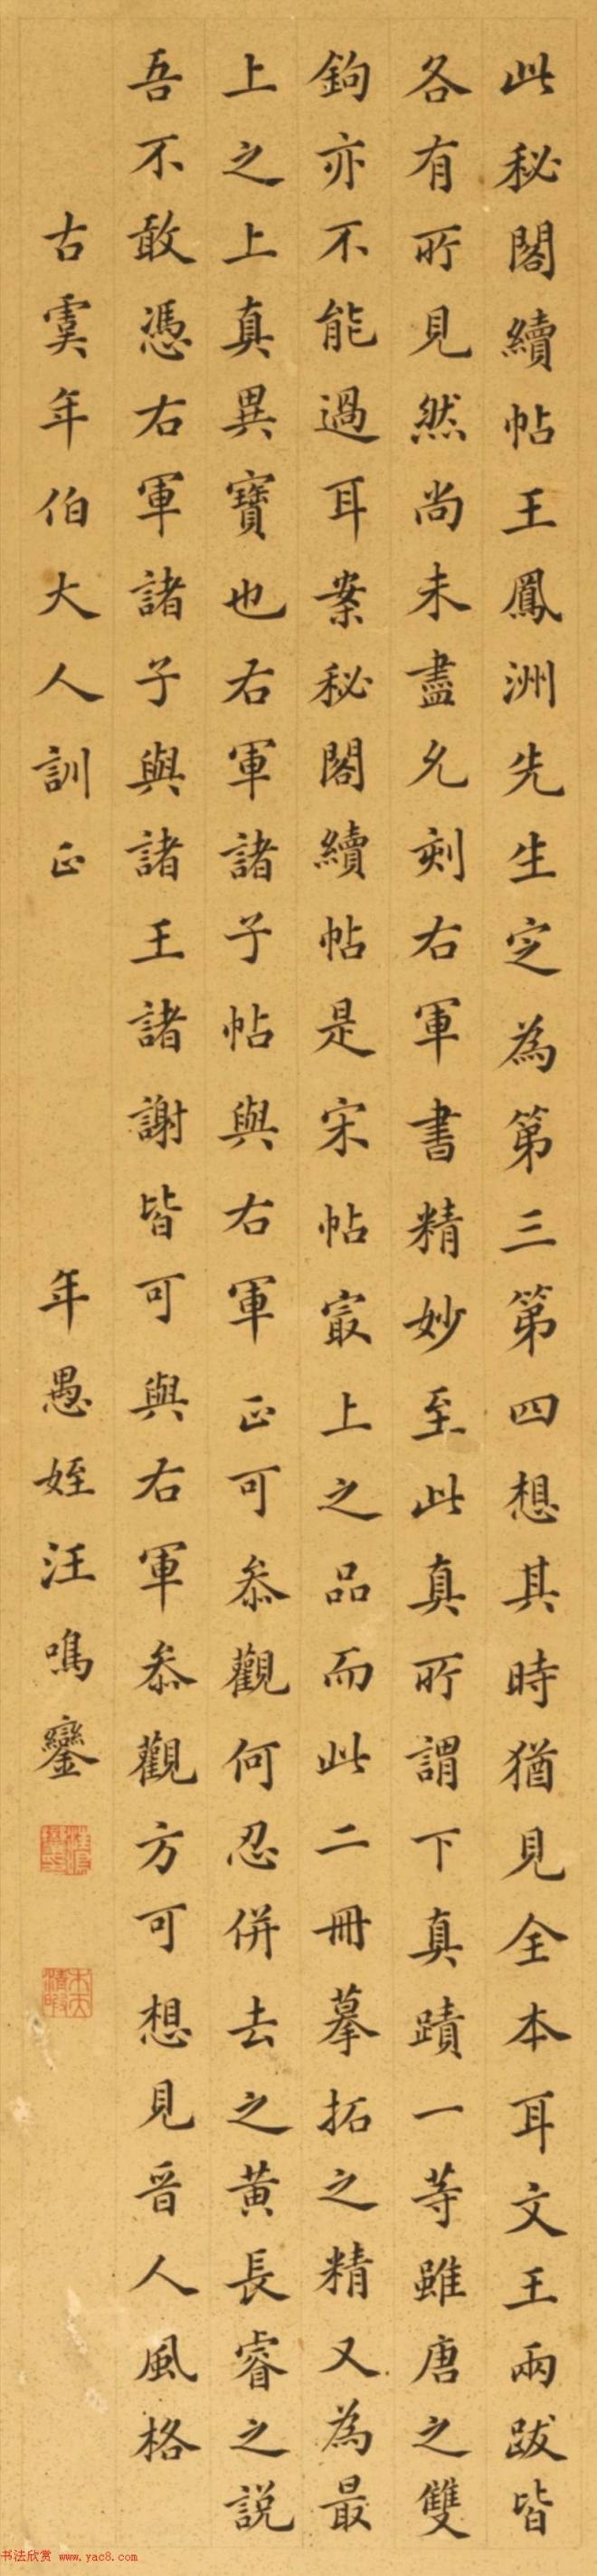 此秘閣續帖王鳳洲先生定為第三第四想其時猶見全本耳文王兩跋皆
各有所見然尚未盡允刻右軍書精妙至此真所謂下真蹟一等雖唐之雙
鉤亦不能過耳案秘閣續帖是宋帖㝡上之品而此二冊摹拓之精又為最
上之上真異寶也右軍諸子帖與右軍正可叅觀何忍併去之黃長睿之說
吾不敢憑右軍諸子與諸王諸謝皆可與右軍叅觀方可想見晉人風格
古虞年伯大人訓正
年愚姪汪鳴鑾
书法欣赏 www.yac8.com